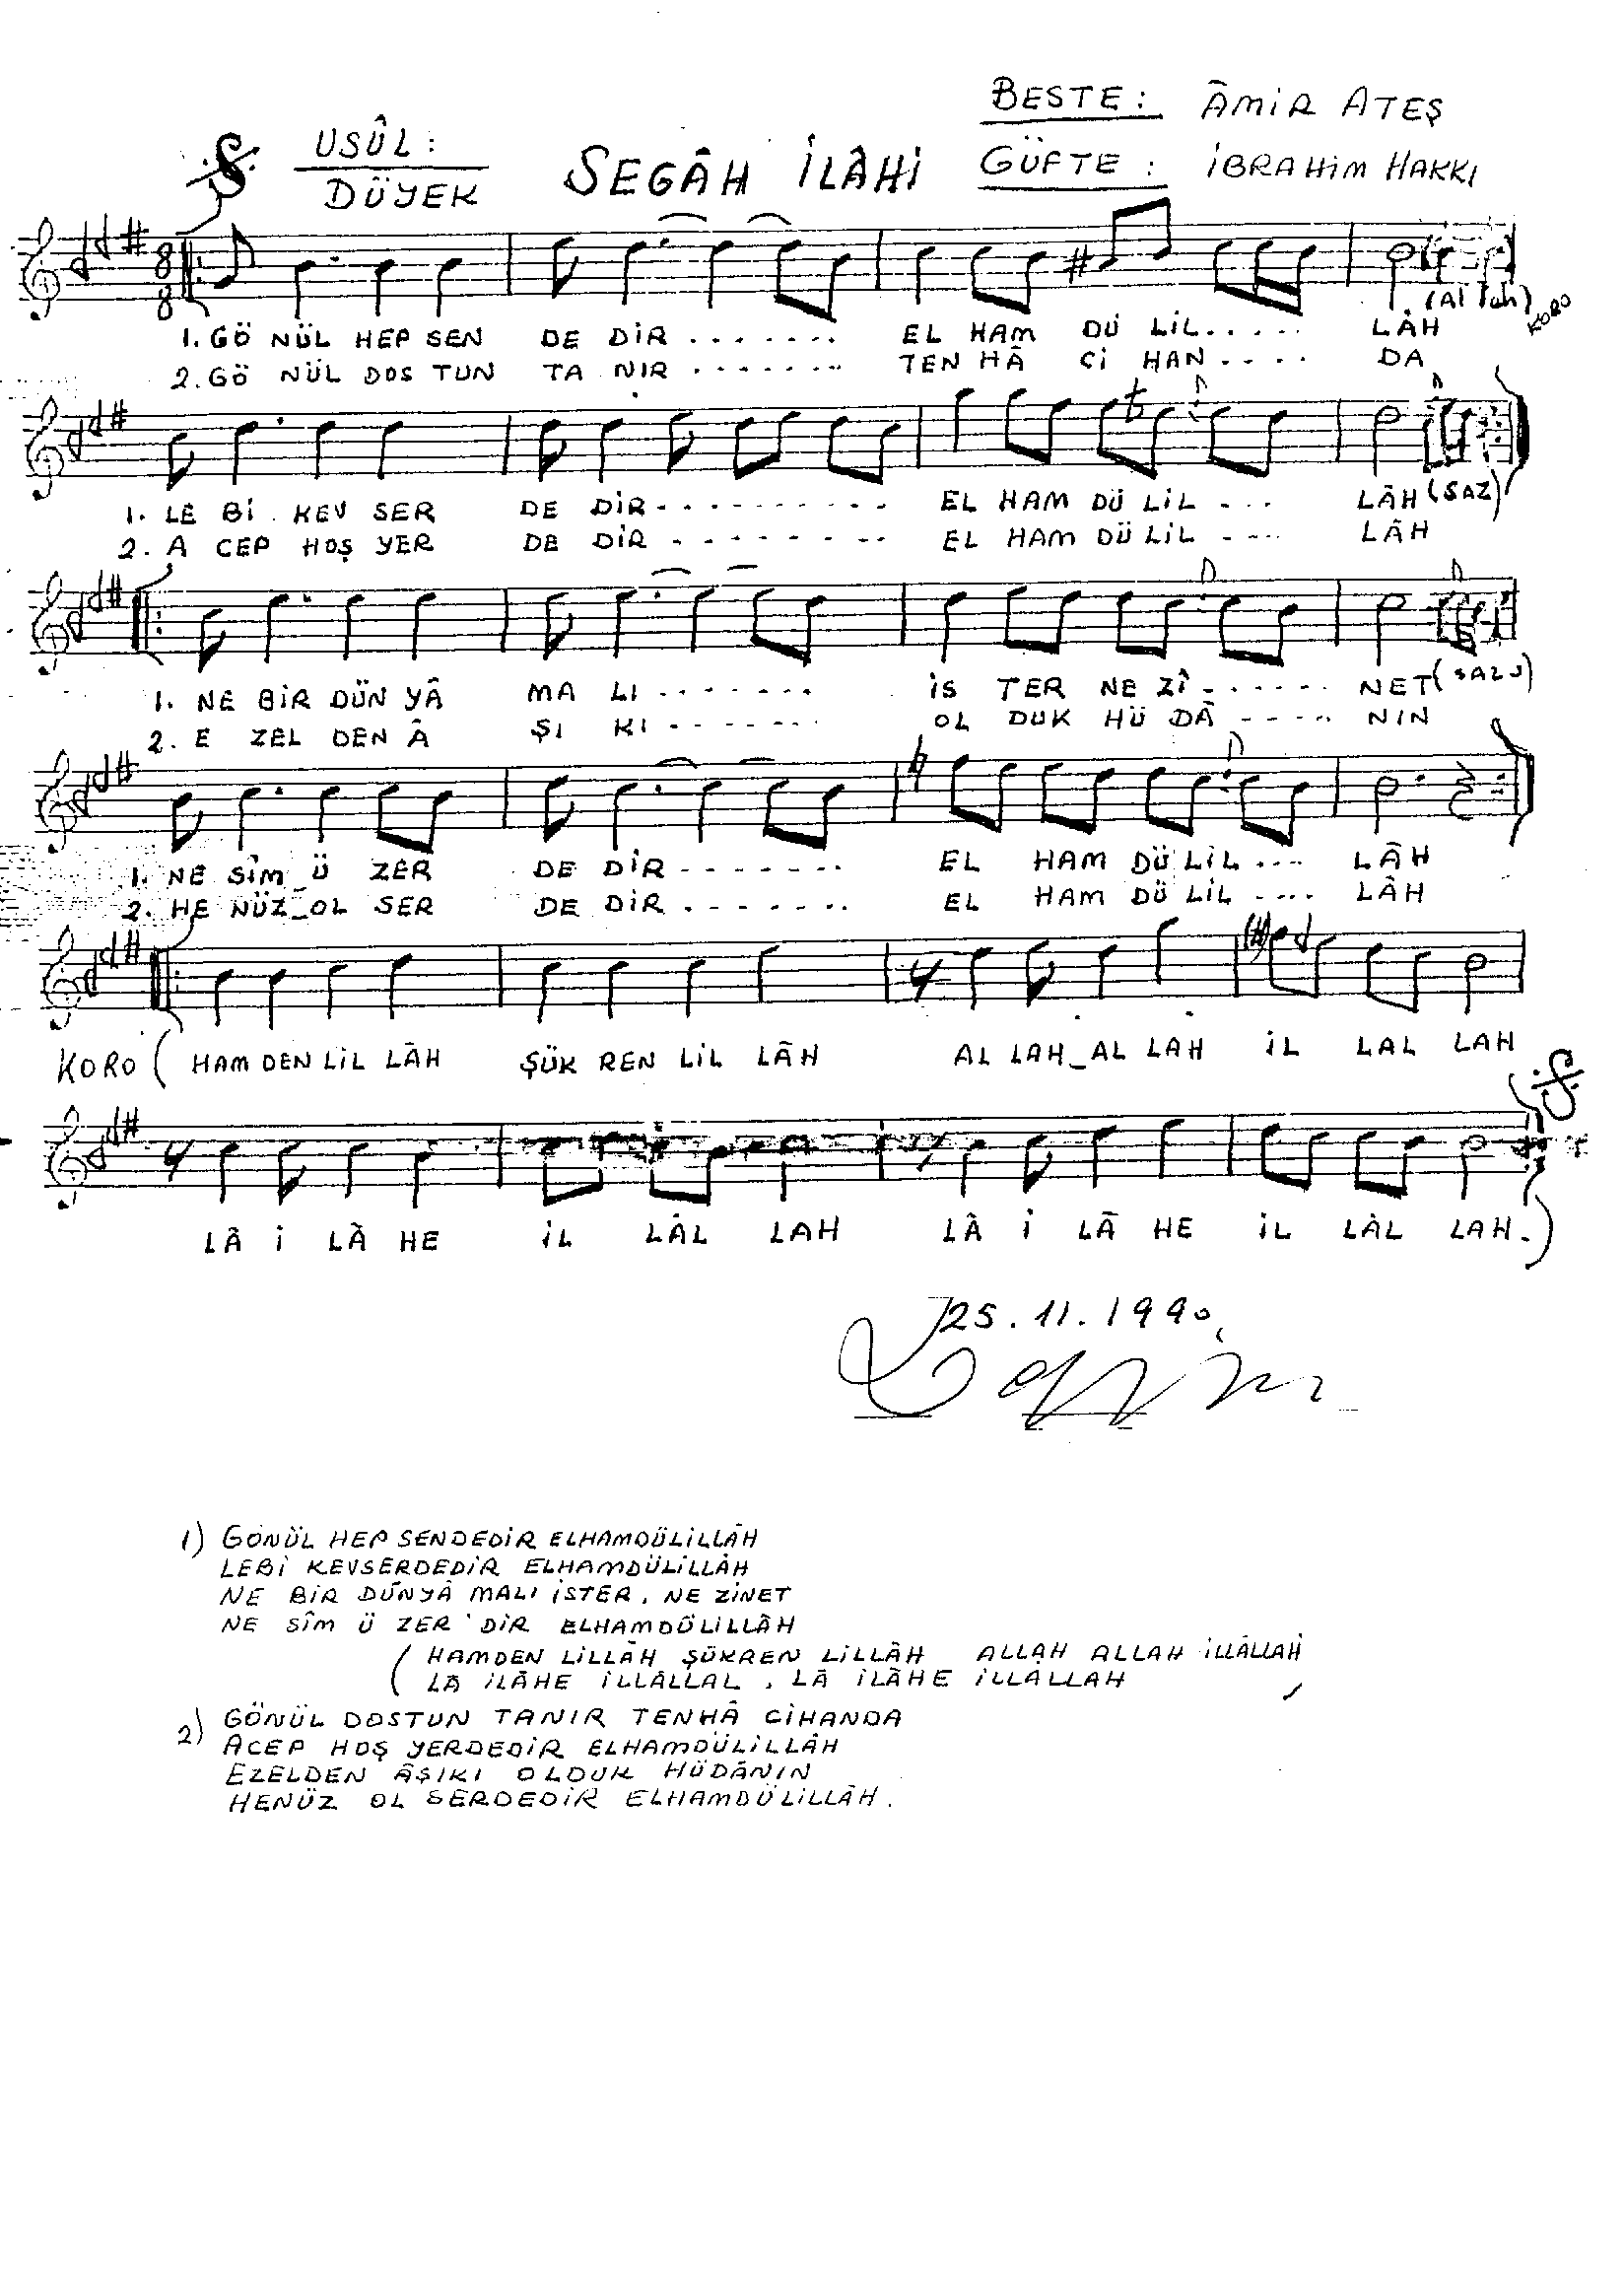 BESTE: ÂMİR ATEŞ
USÛL: DÜYEK
SEGÂH İLÂHİ
GÜFTE: İBRAHİM HAKKI
8 8
(Al lah) KORO
1. GÖ NÜL HEP SEN DE DİR ....... EL HAM DÜ LİL..... LÂH
2. GÖ NÜL DOS TUN TA NIR ....... TEN HÂ Cİ HAN.... DA
1. LE Bİ KEV SER DE DİR---------- EL HAM DÜ LİL ... LÂH (SAZ)
2. A CEP HOŞ YER DE DİR --------- EL HAM DÜ LİL ---- LÂH
1. NE BİR DÜN YÂ MA LI ------- İS TER NE Zİ------ NET (SAZ)
2. E ZEL DEN Â ŞI KI ------- OL DUK HÜ DÂ ---- NIN
1. NE SÎM_Ü ZER DE DİR------- EL HAM DÜ LİL .... LÂH
2. HE NÜZ_OL SER DE DİR ....... EL HAM DÜ LİL .... LÂH
KORO ( HAM DEN LİL LÂH ŞÜK REN LİL LÂH AL LAH_AL LAH İL LAL LAH
LÂ İ LÂ HE İL LÂL LAH LÂ İ LÂ HE İL LÂL LAH.)
25.11.1990
1) GÖNÜL HEP SENDEDİR ELHAMDÜLİLLÂH
LEBİ KEVSERDEDİR ELHAMDÜLİLLÂH
NE BİR DÜNYÂ MALI İSTER, NE ZİNET
NE SÎM Ü ZER'DİR ELHAMDÜLİLLÂH
( HAMDEN LİLLÂH ŞÜKREN LİLLÂH ALLAH ALLAH İLLÂLLAH
( LÂ İLÂHE İLLÂLLAL, LÂ İLÂHE İLLÂLLAH
2) GÖNÜL DOSTUN TANIR TENHÂ CİHANDA
ACEP HOŞ YERDEDİR ELHAMDÜLİLLÂH
EZELDEN ÂŞIKI OLDUK HÜDÂNIN
HENÜZ OL SERDEDİR ELHAMDÜLİLLÂH.